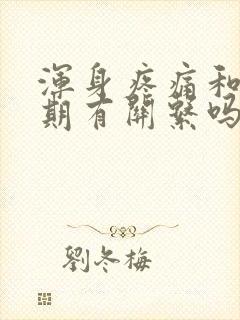 渾身疼痛和
期有關繫吗
劉冬梅